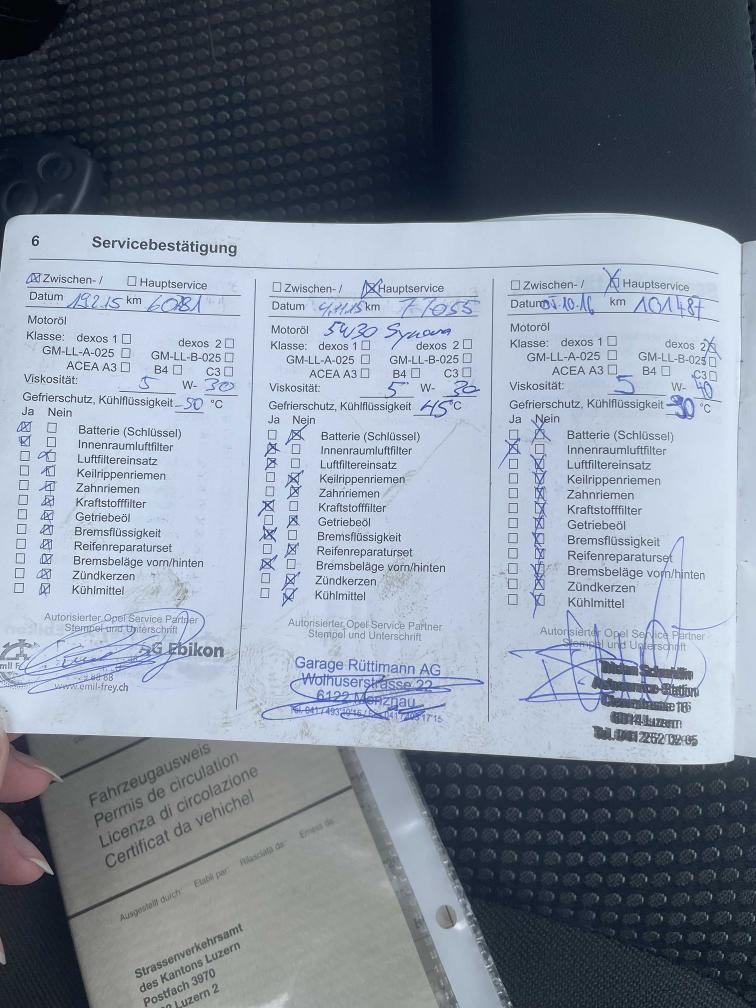 6 Servicebestätigung
☒ Zwischen- / ☐ Hauptservice
Datum 19.2.15 km 6081
Motoröl
Klasse: dexos 1 ☐ dexos 2 ☐
GM-LL-A-025 ☐ GM-LL-B-025 ☐
ACEA A3 ☐ B4 ☐ C3 ☐
Viskosität: 5 W- 30
Gefrierschutz, Kühlflüssigkeit -30 °C
Ja Nein
☒ ☐ Batterie (Schlüssel)
☒ ☐ Innenraumluftfilter
☐ ☒ Luftfiltereinsatz
☐ ☒ Keilrippenriemen
☐ ☒ Zahnriemen
☐ ☒ Kraftstofffilter
☐ ☒ Getriebeöl
☐ ☒ Bremsflüssigkeit
☐ ☒ Reifenreparaturset
☐ ☒ Bremsbeläge vorn/hinten
☐ ☒ Zündkerzen
☐ ☒ Kühlmittel
Autorisierter Opel Service Partner
Stempel und Unterschrift
AG Ebikon
www.emil-frey.ch
☐ Zwischen- / ☒ Hauptservice
Datum 4.11.15 km 77055
Motoröl 5W30
Klasse: dexos 1 ☐ dexos 2 ☐
GM-LL-A-025 ☐ GM-LL-B-025 ☐
ACEA A3 ☐ B4 ☐ C3 ☐
Viskosität: 5 W- 30
Gefrierschutz, Kühlflüssigkeit 45 °C
Ja Nein
☐ ☒ Batterie (Schlüssel)
☒ ☐ Innenraumluftfilter
☒ ☐ Luftfiltereinsatz
☐ ☒ Keilrippenriemen
☐ ☒ Zahnriemen
☒ ☐ Kraftstofffilter
☐ ☒ Getriebeöl
☒ ☐ Bremsflüssigkeit
☐ ☒ Reifenreparaturset
☒ ☐ Bremsbeläge vorn/hinten
☐ ☒ Zündkerzen
☐ ☒ Kühlmittel
Autorisierter Opel Service Partner
Stempel und Unterschrift
Garage Rüttimann AG
Wolhuserstrasse 22
6122 Menznau
☐ Zwischen- / ☒ Hauptservice
Datum 05.10.16 km 101487
Motoröl
Klasse: dexos 1 ☐ dexos 2 ☒
GM-LL-A-025 ☐ GM-LL-B-025 ☐
ACEA A3 ☐ B4 ☐ C3 ☐
Viskosität: 5 W- 40
Gefrierschutz, Kühlflüssigkeit °C
Ja Nein
☐ ☒ Batterie (Schlüssel)
☒ ☐ Innenraumluftfilter
☐ ☒ Luftfiltereinsatz
☐ ☒ Keilrippenriemen
☐ ☒ Zahnriemen
☐ ☒ Kraftstofffilter
☐ ☒ Getriebeöl
☐ ☒ Bremsflüssigkeit
☐ ☒ Reifenreparaturset
☐ ☒ Bremsbeläge vorn/hinten
☐ ☒ Zündkerzen
☐ ☒ Kühlmittel
Autorisierter Opel Service Partner
Stempel und Unterschrift
6014 Luzern
Tel. 041 252 02 05
Fahrzeugausweis
Permis de circulation
Licenza di circolazione
Certificat da vehichel
Ausgestellt durch: Etabli par: Rilasciata da: Emess da:
Strassenverkehrsamt
des Kantons Luzern
Postfach 3970
Luzern 2